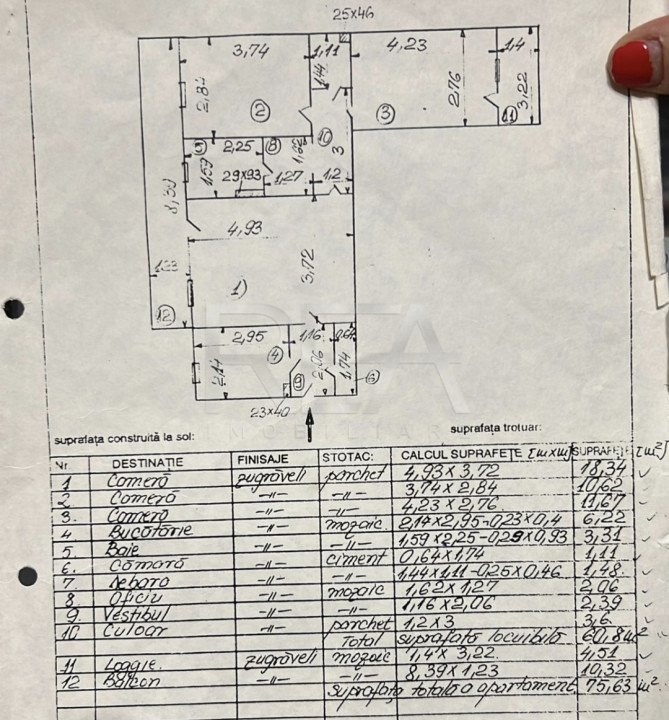 25×46
3,74 1,11 4,23 1,4
1,44
2,84 2,76 3,22
2 3 11
10
5 2,25 8 1,62
1,59 3
29×93 1,27 1,2
8,39
4,93
3,72
1,23
1)
12
2,95 1,16 0,64
4
2,14 2,06 1,74
9 6
23×40
suprafața construită la sol: suprafața trotuar:
Nr DESTINAȚIE FINISAJE STOTAC: CALCUL SUPRAFEȚE [m×m] SUPRAFEȚE [m²]
1 Cameră zugrăveli parchet 4,93×3,72 18,34
2 Cameră -"- -"- 3,74×2,84 10,62
3. Cameră -"- -"- 4,23×2,76 11,67
4 Bucătărie -"- mozaic 2,14×2,95-0,23×0,4 6,22
5. Baie -"- -"- 1,59×2,25-0,29×0,93 3,31
6. Cămară -"- ciment 0,64×1,74 1,11
7 Debara -"- -"- 1,44×1,11-0,25×0,46 1,48
8 Oficiu -"- mozaic 1,62×1,27 2,06
9 Vestibul -"- -"- 1,16×2,06 2,39
10 Culoar -"- parchet 1,2×3 3,6
Total suprafață locuibilă 60,8 m²
11 Loggie. zugrăveli mozaic 1,4×3,22 4,51
12 Balcon -"- -"- 8,39×1,23 10,32
suprafața totală a apartament 75,63 m²